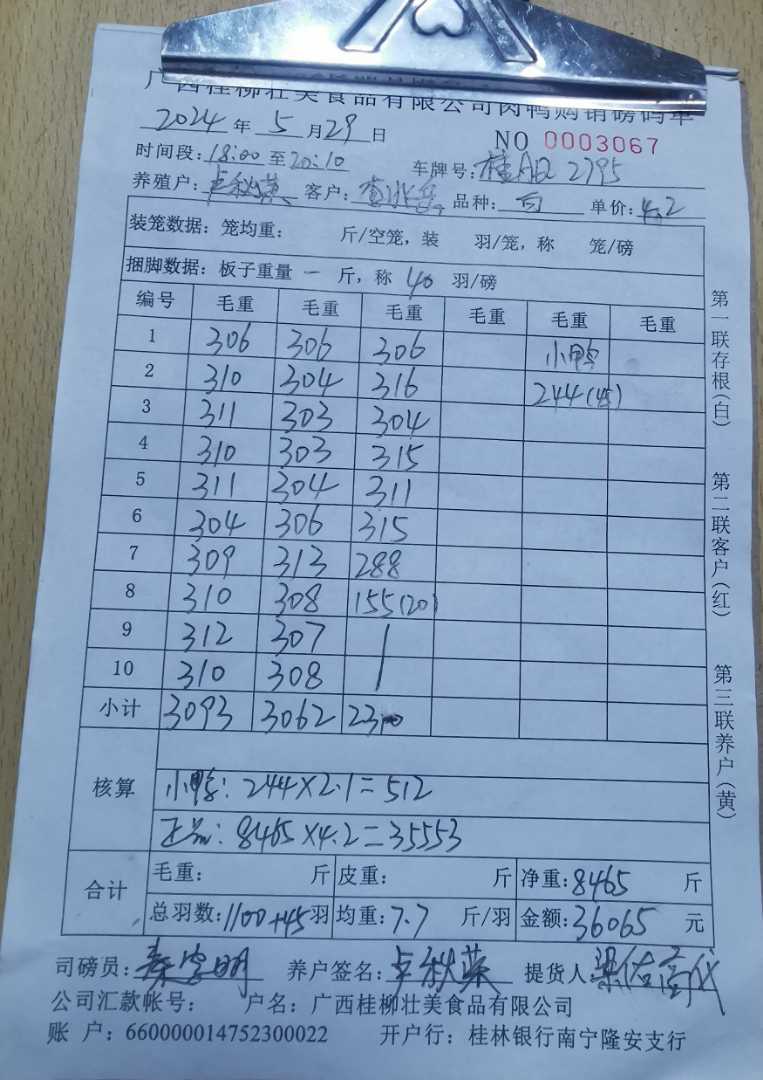 广西桂柳壮美食品有限公司肉鸭购销磅码单
2024 年 5 月 29 日 NO 0003067
时间段: 18:00 至 20:10 车牌号: 桂AQ 2795
养殖户: 卢秋英 客户: 品种: 白 单价: 4.2
装笼数据: 笼均重: 斤/空笼, 装 羽/笼, 称 笼/磅
捆脚数据: 板子重量 一 斤, 称 40 羽/磅
编号 毛重 毛重 毛重 毛重 毛重 毛重
1 306 306 306 小鸭
2 310 304 316 244(45)
3 311 303 304
4 310 303 315
5 311 304 311
6 304 306 315
7 309 313 288
8 310 308 155(20)
9 312 307 /
10 310 308 /
小计 3093 3062 2310
核算
小鸭: 244×2.1=512
正品: 8465×4.2=35553
合计 毛重: 斤 皮重: 斤 净重: 8465 斤
总羽数: 1100+45 羽 均重: 7.7 斤/羽 金额: 36065 元
司磅员: 秦 明 养户签名: 卢秋英 提货人: 梁佑
公司汇款帐号: 户名: 广西桂柳壮美食品有限公司
账 户: 660000014752300022 开户行: 桂林银行南宁隆安支行
第一联存根(白) 第二联客户(红) 第三联养户(黄)